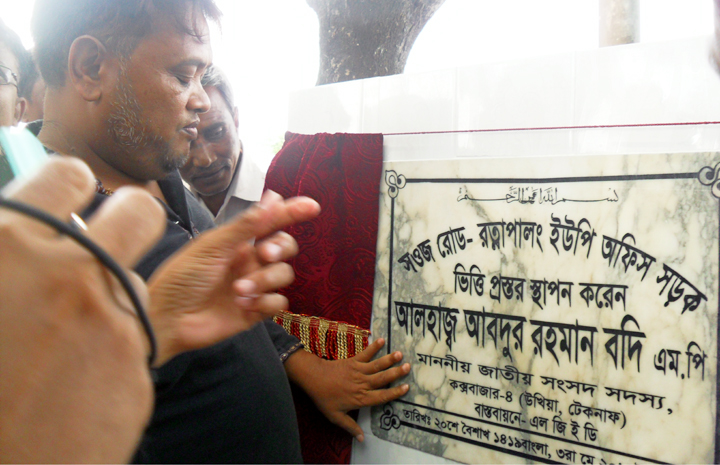 بسم الله الرحمن الرحيم
সওজ রোড- রত্নাপালং ইউপি অফিস সড়ক
ভিত্তি প্রস্তর স্থাপন করেন
আলহাজ্ব আবদুর রহমান বদি এম.পি
মাননীয় জাতীয় সংসদ সদস্য,
কক্সবাজার-৪ (উখিয়া, টেকনাফ)
বাস্তবায়নে- এল জি ই ডি
তারিখঃ ২০শে বৈশাখ ১৪১৯বাংলা, ৩রা মে